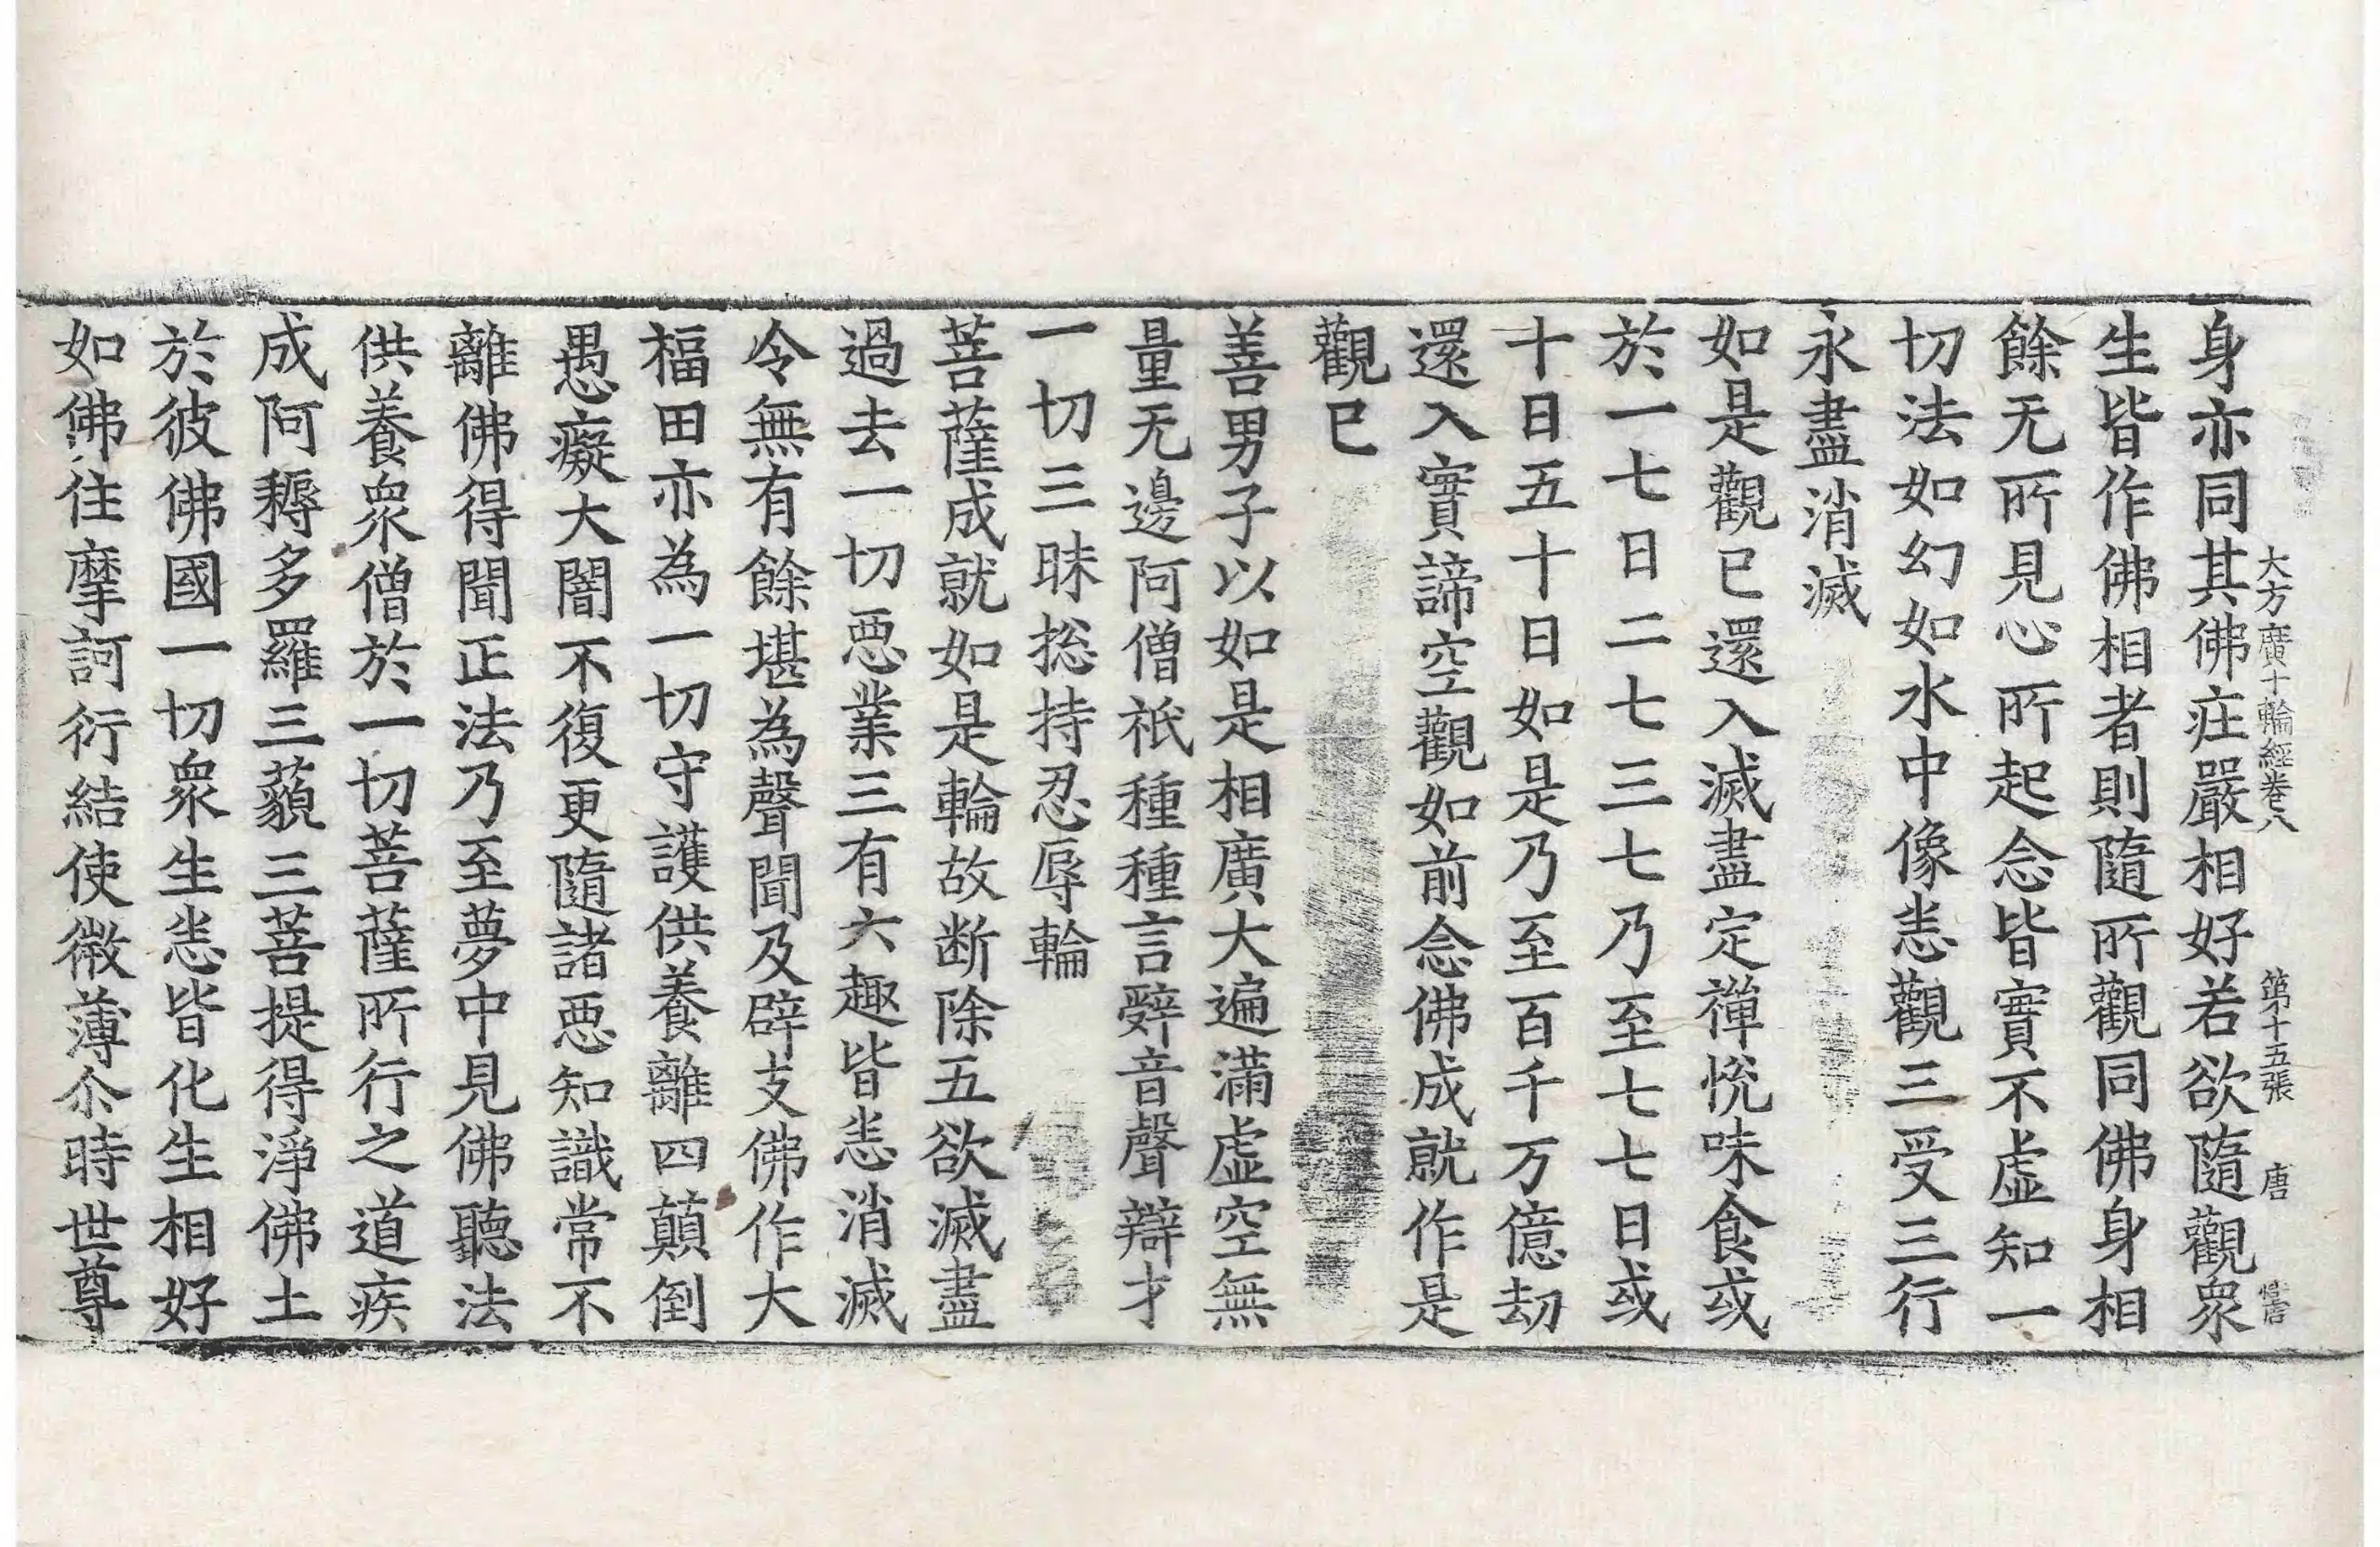 大方廣十輪經卷八 第十五張 唐
身亦同其佛庄嚴相好若欲隨觀衆
生皆作佛相者則隨所觀同佛身相
餘无所見心所起念皆實不虛知一
切法如幻如水中像恚觀三受三行
永盡消滅
如是觀已還入滅盡定禪悅味食或
於一七日二七三七乃至七七日或
十日五十日如是乃至百千万億劫
還入實諦空觀如前念佛成就作是
觀已
善男子以如是相廣大遍滿虛空無
量无邊阿僧祇種種言辤音聲辯才
一切三昧捴持忍辱輪
菩薩成就如是輪故断除五欲滅盡
過去一切惡業三有六趣皆恚消滅
令無有餘堪為聲聞及辟支佛作大
福田亦為一切守護供養離四顛倒
愚癡大闇不復更隨諸惡知識常不
離佛得聞正法乃至夢中見佛聽法
供養衆僧於一切菩薩所行之道疾
成阿耨多羅三藐三菩提得淨佛土
於彼佛國一切衆生恚皆化生相好
如佛住摩訶衍結使微薄尒時世尊